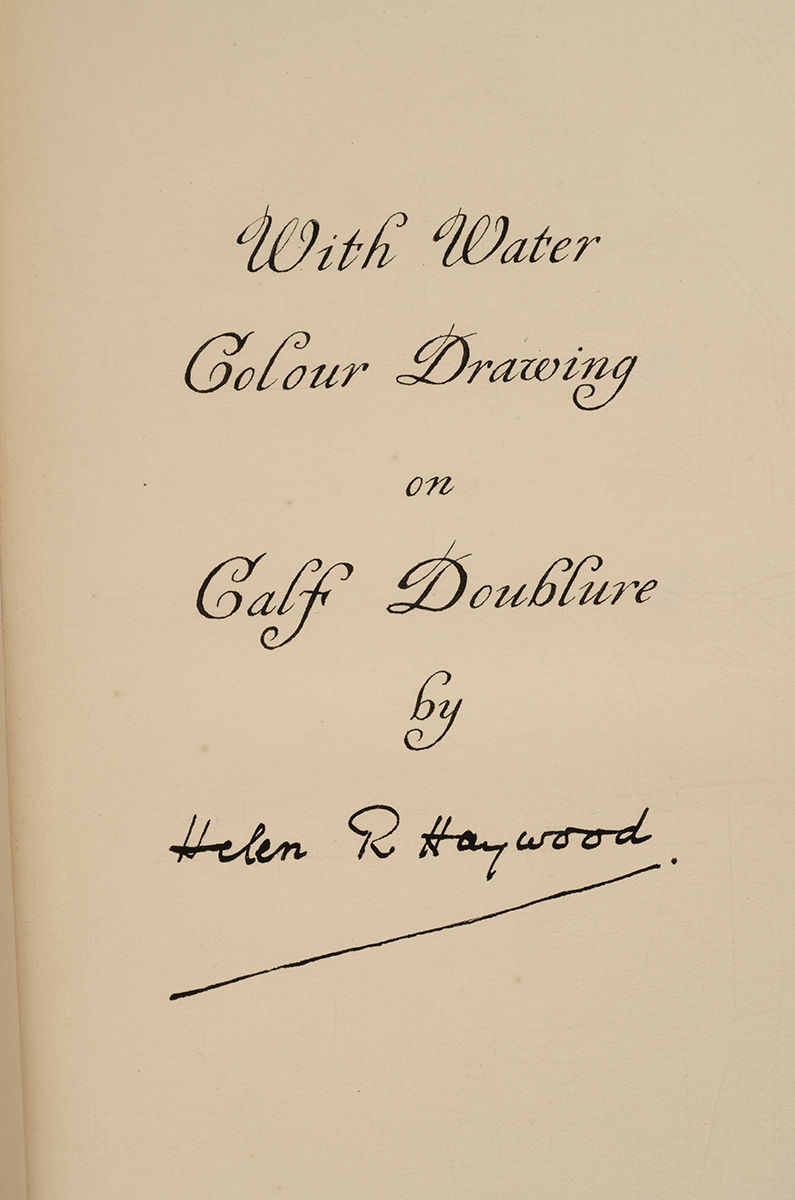 With Water
Colour Drawing
on
Calf Doublure
by
Helen R Haywood.